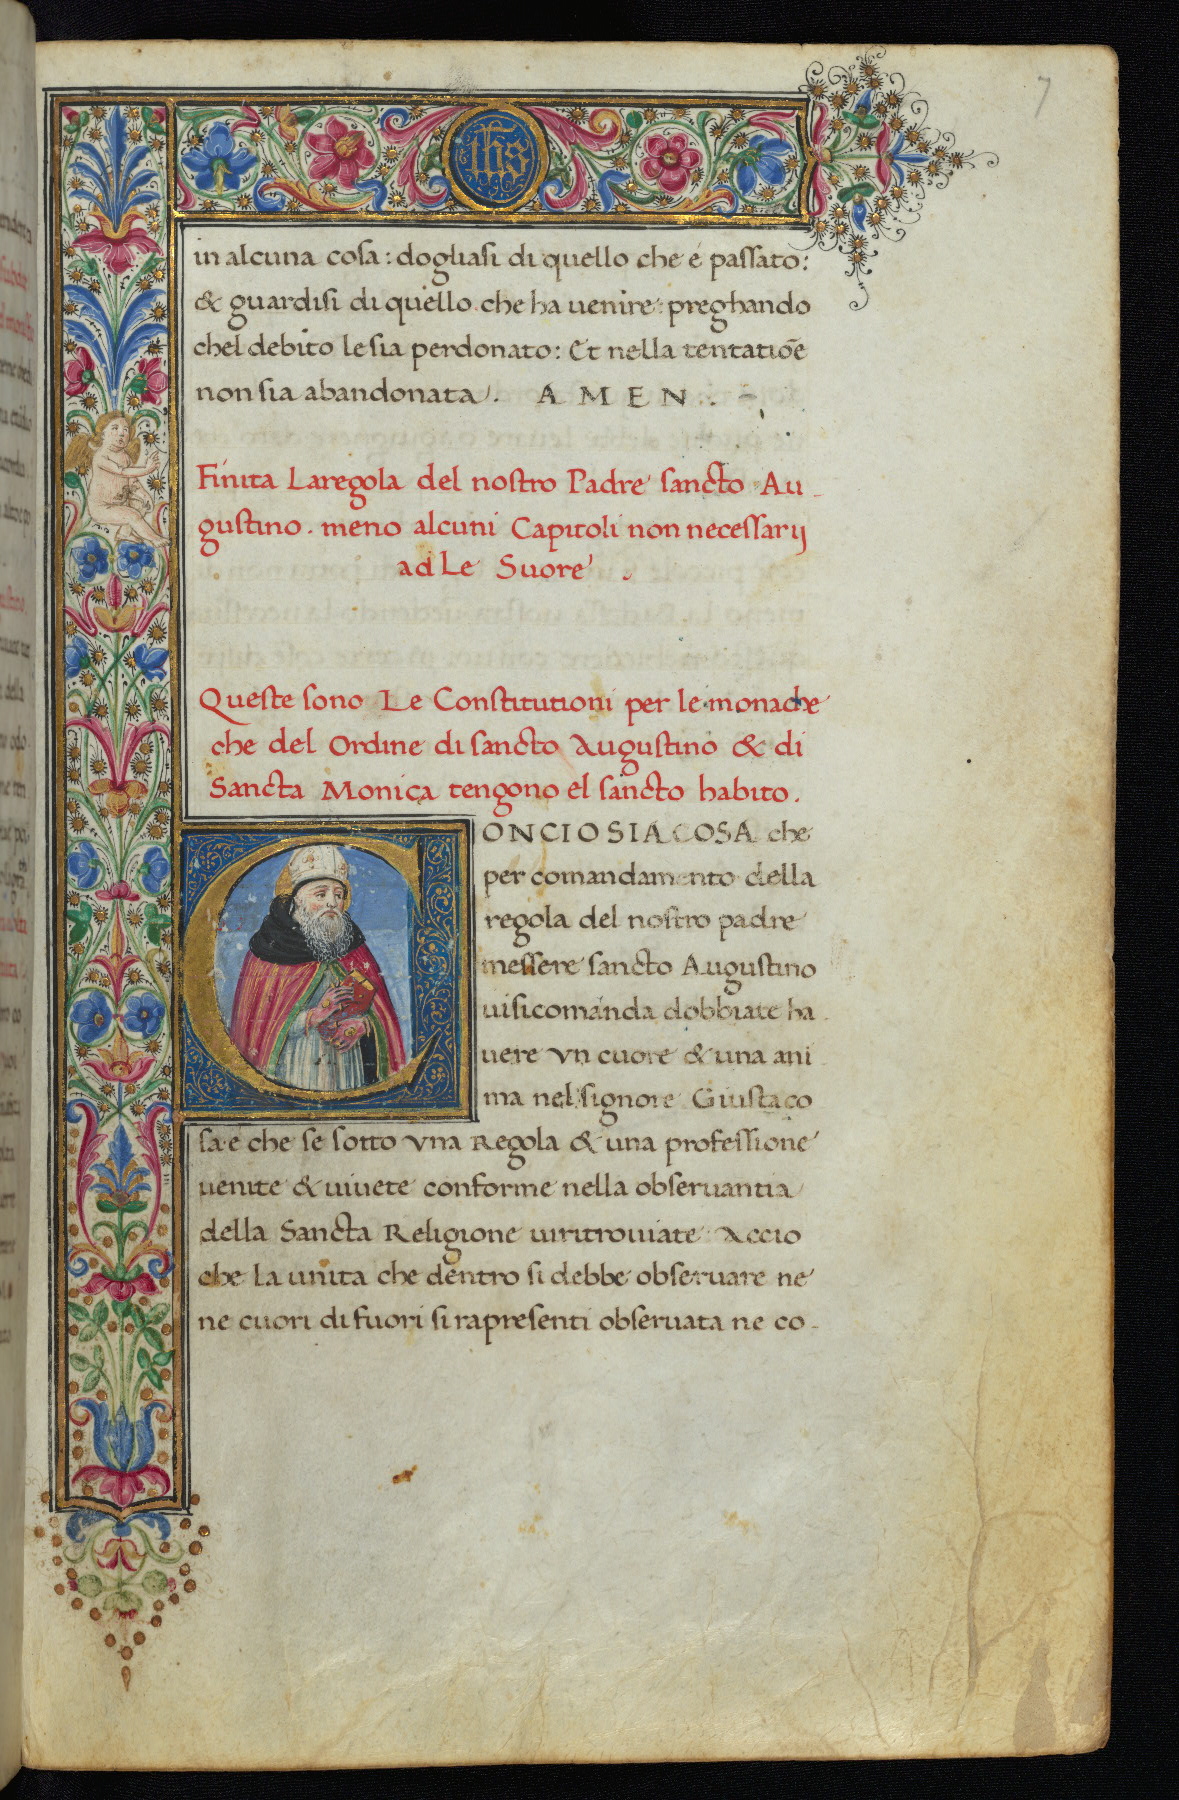 7
ihs
in alcuna cosa: dogliasi di quello che é passato:
& guardisi di quello che ha venire: preghando
chel debito le sia perdonato: Et nella tentatiōe
non sia abandonata. AMEN.
Finita La regola del nostro Padre sancto Au-
gustino. meno alcuni Capitoli non necessarij
ad Le Suore.
Queste sono Le Constitutioni per le monache
che del Ordine di sancto Augustino & di
Sancta Monica tengono el sancto habito.
CONCIOSIACOSA che
per comandamento della
regola del nostro padre
messere sancto Augustino
ui si comanda dobbiate ha-
uere vn cuore & una ani
ma nel signore Giusta co
sa e che se sotto vna Regola & una professione
uenite & uiuete conforme nella obseruantia
della Sancta Religione ui ritrouiate Accio
che la unita che dentro si debbe obseruare ne
ne cuori di fuori si rapresenti obseruata ne co-